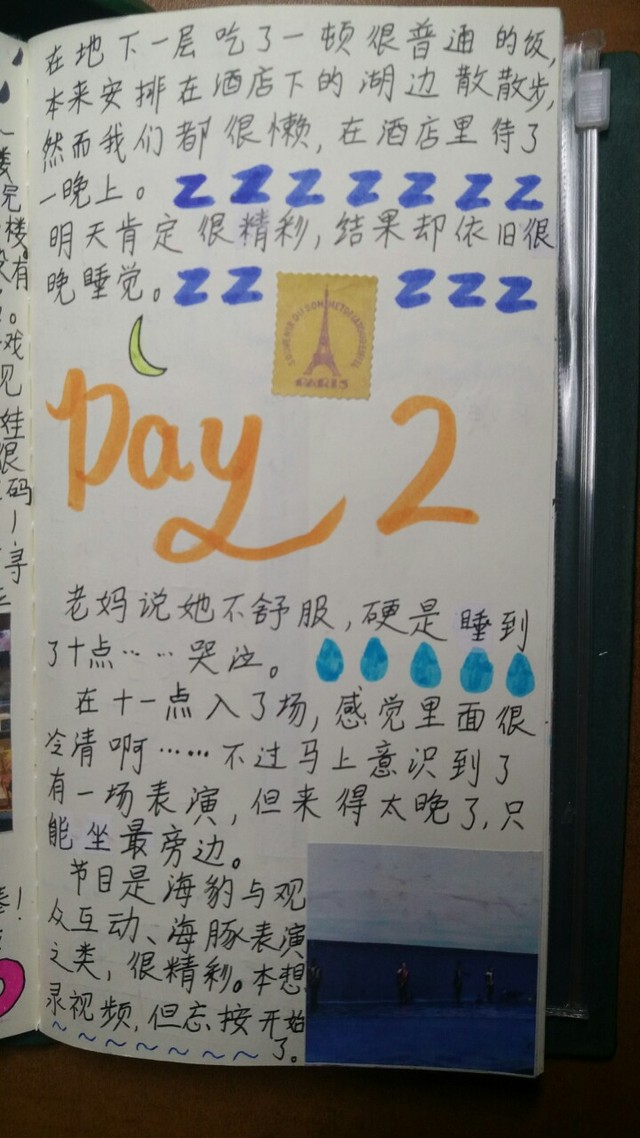 在地下一层吃了一顿很普通的饭,
本来安排在酒店下的湖边散散步,
然而我们都很懒,在酒店里待了
一晚上。ZZZZZZZ
明天肯定很精彩,结果却依旧很
晚睡觉。ZZ ZZZ
PARIS
Day 2
老妈说她不舒服,硬是睡到
了十点……哭泣。
在十一点入了场,感觉里面很
冷清啊……不过马上意识到了
有一场表演,但来得太晚了,只
能坐最旁边。
节目是海豹与观
众互动、海豚表演
之类,很精彩。本想
录视频,但忘按开始
了。